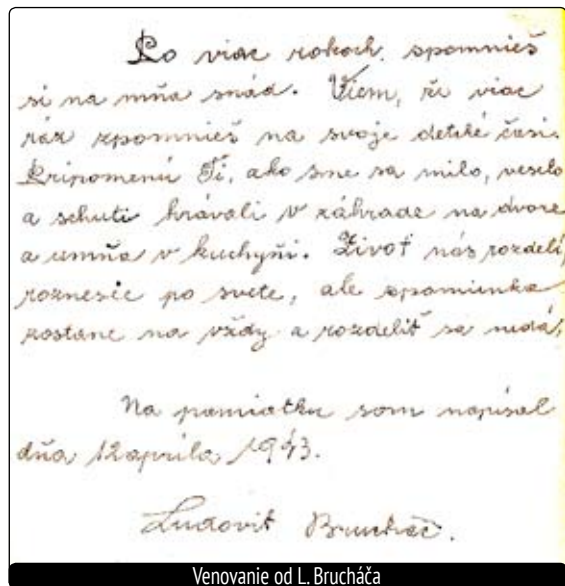 Po viac rokoch, spomnieš
si na mňa snáď. Viem, že viac
ráz zpomnieš na svoje detské časi.
Pripomenú Ti, ako sme sa milo, veselo
a schuti hrávali v záhrade na dvore
a umňa v kuchyňi. Život nás rozdelí,
roznesie po svete, ale spomienka
zostane na vždy a rozdeliť sa nedá.
Na pamiatku som napísal
dňa 12 apríla 1943.
Ľudovít Brucháč.
Venovanie od L. Brucháča